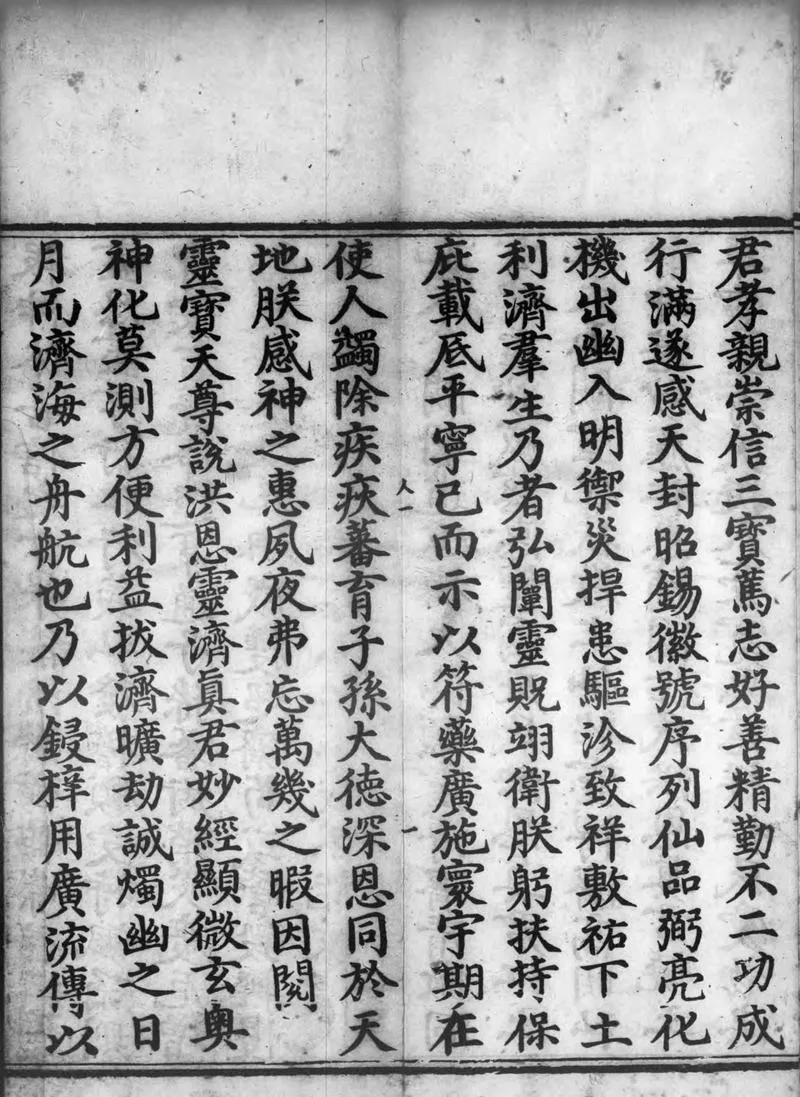 君孝親崇信三寶篤志好善精勤不二功成
行滿遂感天封昭錫徽號序列仙品弼亮化
機出幽入明禦災捍患驅沴致祥敷祐下土
利濟羣生乃者弘闡靈貺翊衛朕躬扶持保
庇載底平寧已而示以符藥廣施寰宇期在
使人蠲除疾疢蕃育子孫大德深恩同於天
地朕感神之惠夙夜弗忘萬幾之暇因閱
靈寶天尊說洪恩靈濟眞君妙經顯微玄奧
神化莫測方便利益拔濟曠劫誠燭幽之日
月而濟海之舟航也乃以鋟梓用廣流傳以